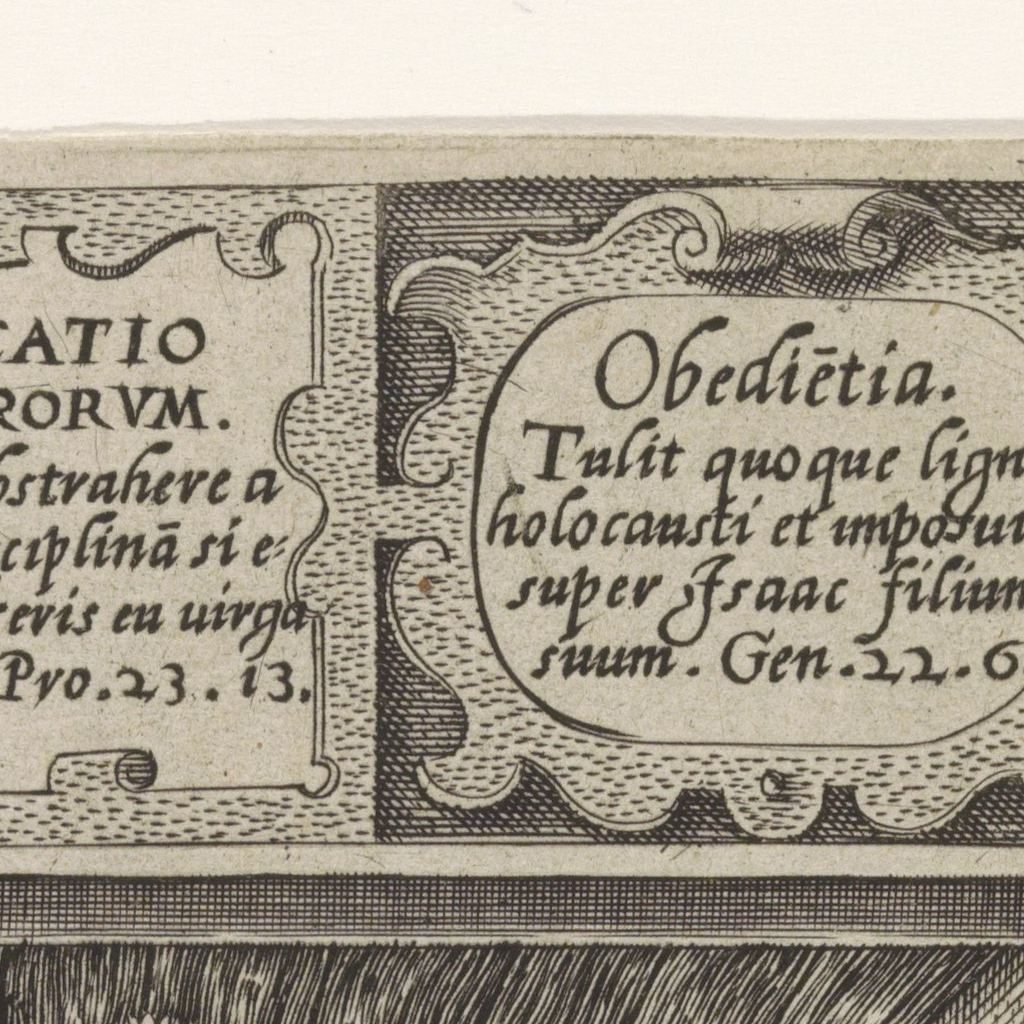 CATIO
RORVM.
bstrahere a
ciplinā si e-
eris eu uirga
Pro. 23. 13.
Obediētia.
Tulit quoque lign
holocausti et imposui
super Isaac filium
suum. Gen. 22. 6